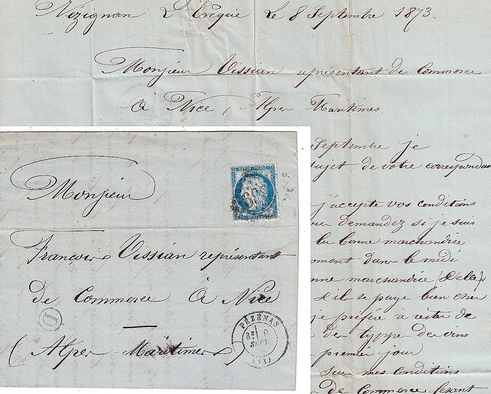 Nézignan L'Evêque Le 8 Septembre 1873.
Monsieur Vissian représentant de Commerce
à Nice, Alpes Maritimes.
Septembre je
sujet de votre correspondan
j'accepte vos conditions
demandez si je suis
la bonne marchandise
moment dans le midi
nne marchandise
s'il se paye bien cher
je préfère
des vins
premier jour
sur mes conditions
de Commerce
Monsieur
François Vissian représentant
De Commerce à Nice
(Alpes Maritimes)
PÉZENAS
SEPT
D